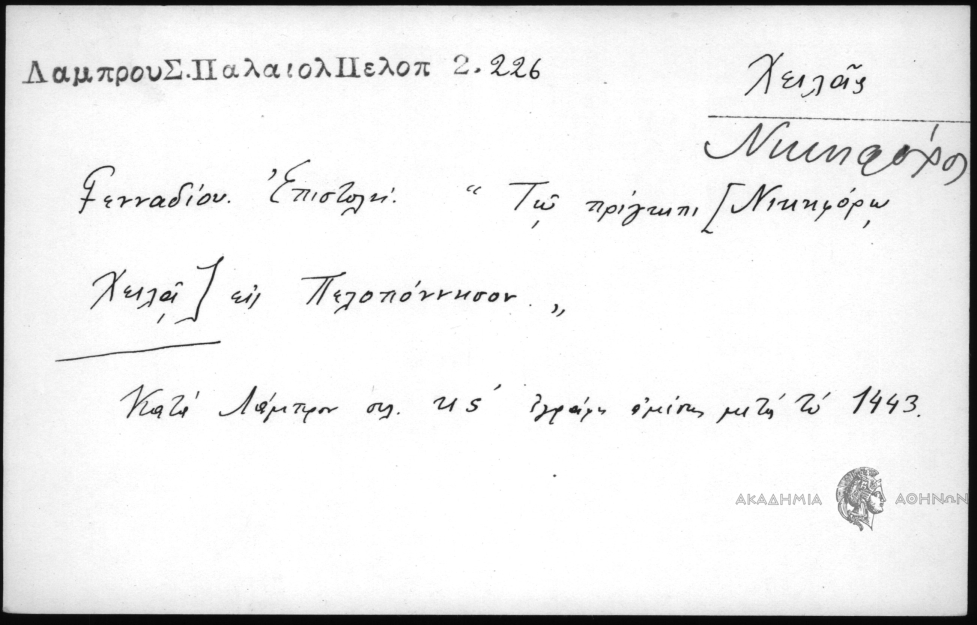 ΛαμπρουΣ.ΠαλαιολΠελοπ 2.226
Χειλᾶς
Νικηφόρος
Γενναδίου. Ἐπιστολή. “ Τῷ πρίγκιπι [Νικηφόρῳ
Χειλᾷ] εἰς Πελοπόννησον. „
Κατὰ Λάμπρον σελ. κς´ ἐγράφη ἀμέσως μετὰ τὸ 1443.
ΑΚΑΔΗΜΙΑ ΑΘΗΝΩΝ